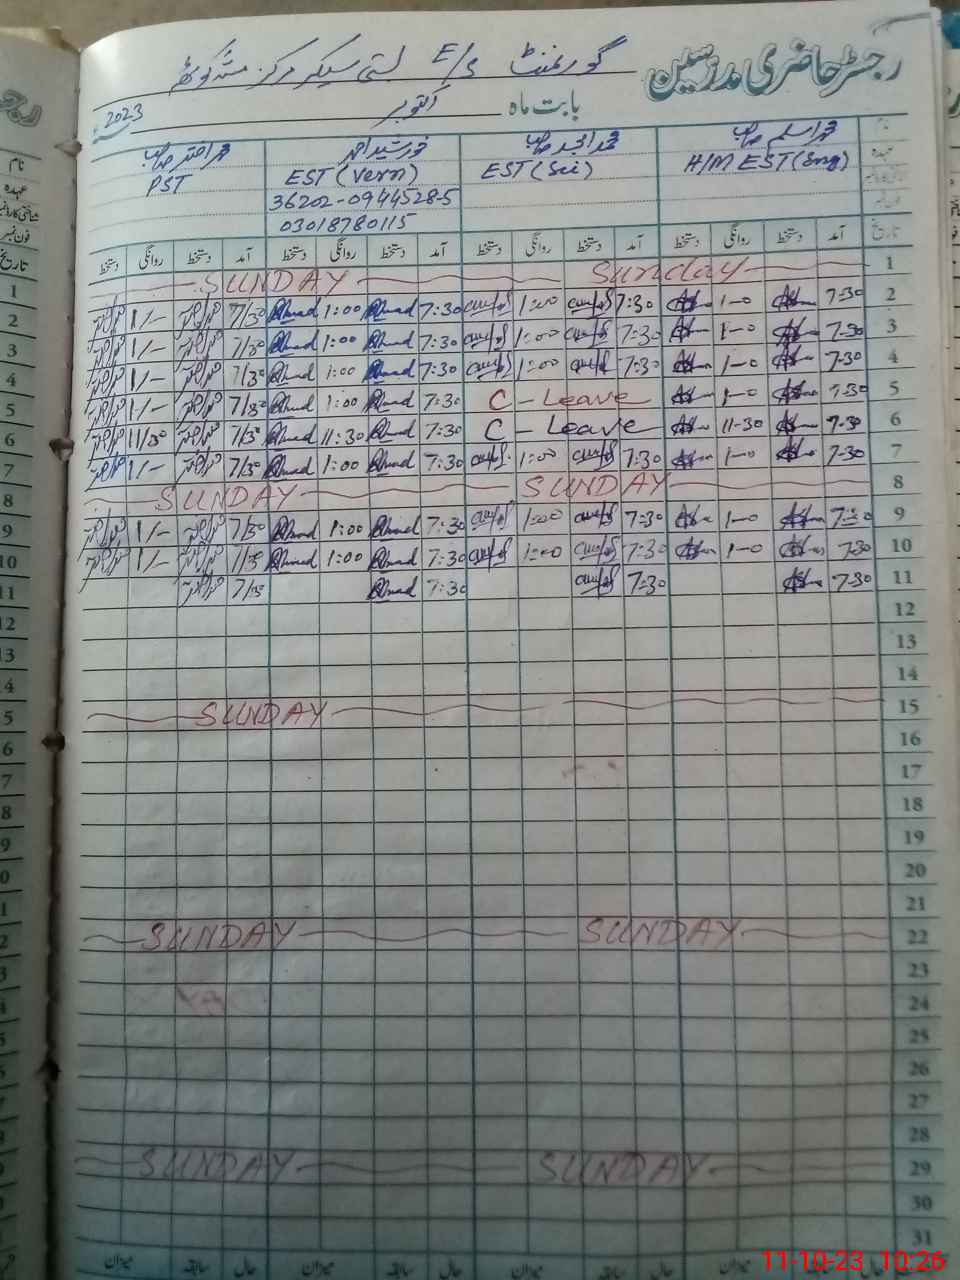 رجسٹر حاضری مدرسین گورنمنٹ E/S بستی سیکر مرکز
بابت ماہ اکتوبر 2023ء
نام محمد اسلم صاحب محمد امجد صاحب خورشید احمد محمد اختر صاحب
عہدہ H/M EST (Eng) EST (Sci) EST (Vern) PST
شناختی کارڈ نمبر 36202-0944528-5
فون نمبر 03018780115
تاریخ آمد دستخط روانگی دستخط آمد دستخط روانگی دستخط آمد دستخط روانگی دستخط آمد دستخط روانگی دستخط
1 Sunday SUNDAY
2 7-30 1-0 7:30 1:00 7:30 Ahmad 1:00 Ahmad 7/30 1/-
3 7-30 1-0 7:30 1:00 7:30 Ahmad 1:00 Ahmad 7/30 1/-
4 7-30 1-0 7:30 1:00 7:30 Ahmad 1:00 Ahmad 7/30 1/-
5 7-30 1-0 C - Leave 7:30 Ahmad 1:00 Ahmad 7/30 1/-
6 7-30 11-30 C - Leave 7:30 Ahmad 11:30 Ahmad 7/30 11/30
7 7-30 1-0 7:30 1:00 7:30 Ahmad 1:00 Ahmad 7/30 1/-
8 SUNDAY SUNDAY
9 7-30 1-0 7:30 1:00 7:30 Ahmad 1:00 Ahmad 7/30 1/-
10 7-30 1-0 7:30 1:00 7:30 Ahmad 1:00 Ahmad 7/30 1/-
11 7-30 7:30 7:30 Ahmad 7/30
12
13
14
15 SUNDAY
16
17
18
19
20
21
22 SUNDAY SUNDAY
23
24
25
26
27
28
29 SUNDAY SUNDAY
30
31
حال سابقہ میزان حال سابقہ میزان حال سابقہ میزان
11-10-23 10:26